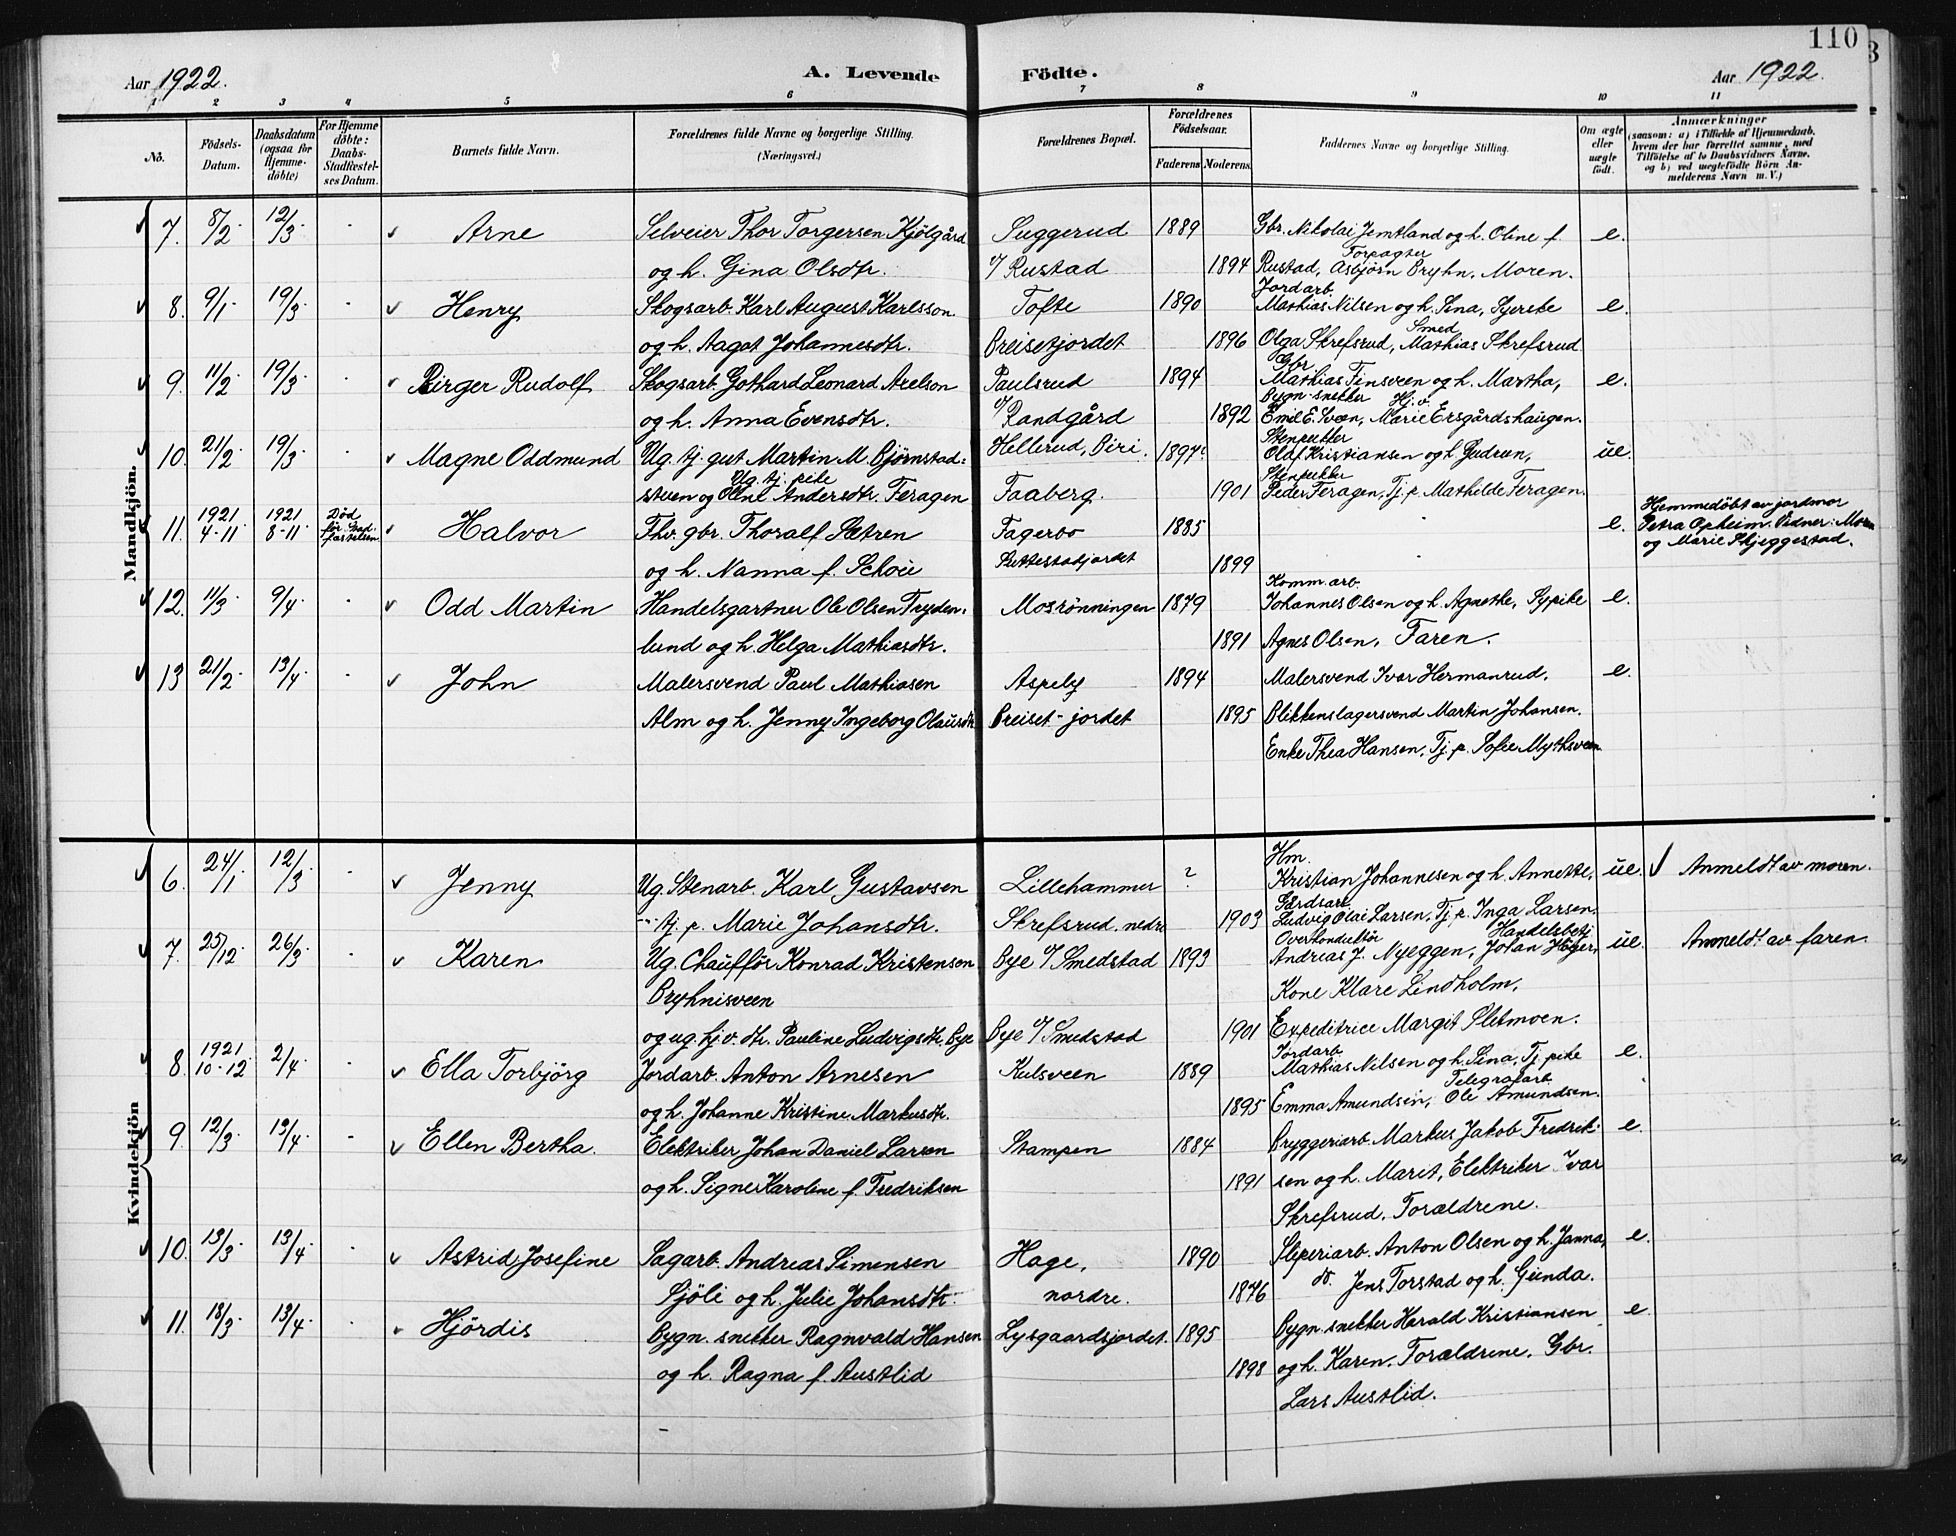 110
Aar 1922.
A. Levende Födte.
Aar 1922.
1 2 3 4 5 6 7 8 9 10 11
No.
Födsels-Datum.
Daabsdatum (ogsaa for Hjemme-döbte)
For Hjemme döbte: Daabs-Stadfæstelses Datum.
Barnets fulde Navn.
Forældrenes fulde Navne og borgerlige Stilling. (Næringsvei.)
Forældrenes Bopæl.
Forældrenes Födselsaar.
Faderens. Moderens.
Faddernes Navne og borgerlige Stilling.
Om ægte eller uægte födt.
Anmærkninger (saasom: a) i Tilfælde af Hjemmedaab, hvem der har forrettet samme, med Tilföielse af to Daabsvidners Navne, og b) ved uægtefödte Börn Anmelderens Navn m. V.)
Mandkjön.
7. 8/2 12/3 - Arne Selveier Thor Torgersen Kjölgård Suggerud 1889 Gbr. Nikolai Jemtland og h. Oline f. e.
og h. Gina Olsdtr. v/ Rustad 1894 Rustad, Forpagter Asbjørn Bryhn, Moren.
8. 9/1 19/3 - Henry Skogsarb. Karl August Karlsson Tofte 1890 Jordarb. Mathias Nilsen og h. Sina, Syerske e.
og h. Aagot Johannesdtr. Breisetjordet 1896 Olga Skrefsrud, Smed Mathias Skrefsrud
9. 11/2 19/3 - Birger Rudolf Skogsarb. Gothard Leonard Axelson Paulsrud 1894 Gbr Mathias Finsveen og h. Martha, e.
og h. Anna Evensdtr. v/ Randgård 1892 Bygn-snekker Emil E. Svæn, Hj.v. Marie Ersgårdshaugen.
10. 21/2 19/3 - Magne Oddmund Ug. tj. gut Martin M. Bjørnstad- Hellerud, Biri. 1897 Stenhutter Olaf Kristiansen og h Gudrun, ue.
steen og Ug. tj. pike Oline Andersdtr. Feragen Faaberg. 1901 Peder Feragen, Tj. p. Mathilde Feragen.
11. 1921 4-11 1921 8-11 Död før Stadfæstelsen Halvor Thv. gbr. Thoralf Sætren Fagerbo 1885 - e. Hemmedøbt av jordmor Petra Opheim. Vidner: Moren og Marie Skjeggestad.
og h. Nanna f. Schøie Suttestadjordet 1899
12. 11/3 9/4 - Odd Martin Handelsgartner Ole Olsen Fryden- Mosrönningen 1879 Komm. arb. Johannes Olsen og h. Agnethe, Sypike e.
lund og h. Helga Mathiasdtr. 1891 Agnes Olsen, Faren.
13 21/2 13/4 - John Malersvend Paul Mathiasen Aspeby 1894 Malersvend Ivar Hermanrud, e.
Alm og h. Jenny Ingeborg Olausdtr Breiset-jordet 1895 Blikkenslagersvend Martin Johansen.
Enke Thea Hansen, Tj. p. Sofie Mythsveen
Kvindekjön
6. 24/1 12/3 - Jenny Ug. Stenarb. Karl Gustavsen Lillehammer ? Hm. Kristian Johannesen og h. Annette, ue. Anmeldt av moren.
-"- tj. p. Marie Johansdtr. Skrefsrud. nedre 1903 Gårdsarb. Ludvig Olai Larsen, Tj. p. Inga Larsen.
7. 25/12 26/3 - Karen Ug. Chaufför Konrad Kristensen Bye v/ Smedstad 1893 Overkonduktör Andreas J. Nyeggen, Handelsbetj. Johan Höyer, ue. Anmeldt av faren.
Bryhnisveen Kone Klare Lindholm,
og ug. hj. v. dtr. Pauline Ludvigsdtr. Bye Bye v/ Smedstad 1901 Expeditrice Margit Sletmoen.
8. 1921 10-12 2/4 - Ella Torbjörg Jordarb. Anton Arnesen Kulsveen 1889 Jordarb. Mathias Nilsen og h. Sina, Tj. pike e.
og h. Johanne Kristine Markusdtr. 1895 Emma Amundsen, Telegrafarb. Ole Amundsen.
9. 12/3 13/4 - Ellen Bertha. Elektriker Johan Daniel Larsen Stampen 1884 Bryggeriarb. Markus Jakob Fredrik- e.
og h. Signe Karoline f. Fredriksen 1891 sen og h. Maret, Elektriker Ivar
Skrefsrud. Forældrene.
10. 13/3 13/4 - Astrid Josefine Sagarb. Andreas Simensen Hage, 1890 Sliperiarb. Anton Olsen og h. Janna, e.
Sjöli og h. Julie Johansdtr. nordre. 1876 do. Jens Torstad og h. Gunda.
11. 18/3 13/4 - Hjördis Bygn. snekker Ragnvald Hansen Lysgaardsjordet. 1895 Bygn. snekker Harald Kristiansen e.
og h. Ragna f. Austlid 1898 og h. Karen. Forældrene. Gbr.
Lars Austlid.